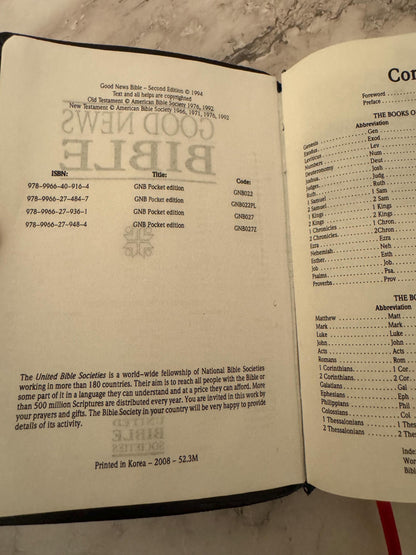 Good News Bible – Second Edition © 1994
Text and all helps are copyrighted
Old Testament © American Bible Society 1976, 1992
New Testament © American Bible Society 1966, 1971, 1976, 1992
GOOD NEWS
BIBLE
ISBN: Title: Code:
978–9966–40–916–4 GNB Pocket edition GNB022
978–9966–27–484–7 GNB Pocket edition GNB022PL
978–9966–27–936–1 GNB Pocket edition GNB027
978–9966–27–948–4 GNB Pocket edition GNB027Z
The United Bible Societies is a world–wide fellowship of National Bible Societies
working in more than 180 countries. Their aim is to reach all people with the Bible or
some part of it in a language they can understand and at a price they can afford. More
than 500 million Scriptures are distributed every year. You are invited in this work by
your prayers and gifts. The Bible Society in your country will very happy to provide
details of its activity.
UNITED
BIBLE
SOCIETIES
Printed in Korea – 2008 – 52.3M
Con
Foreword
Preface
THE BOOKS O
Abbreviation
Genesis Gen
Exodus Exod
Leviticus Lev
Numbers Num
Deuteronomy Deut
Joshua Josh
Judges Judg
Ruth Ruth
1 Samuel 1 Sam
2 Samuel 2 Sam
1 Kings 1 Kings
2 Kings 2 Kings
1 Chronicles 1 Chron
2 Chronicles 2Chron
Ezra Ezra
Nehemiah Neh
Esther Esth
Job Job
Psalms Psalms
Proverbs Prov
THE BO
Abbreviation
Matthew Matt
Mark Mark
Luke Luke
John John
Acts Acts
Romans Rom
1 Corinthians 1 Cor
2 Corinthians 2 Cor
Galatians Gal
Ephesians Eph
Philippians Phil
Colossians Col
1 Thessalonians 1 Thess
2 Thessalonians 2 Thess
Index
Wor
Bible